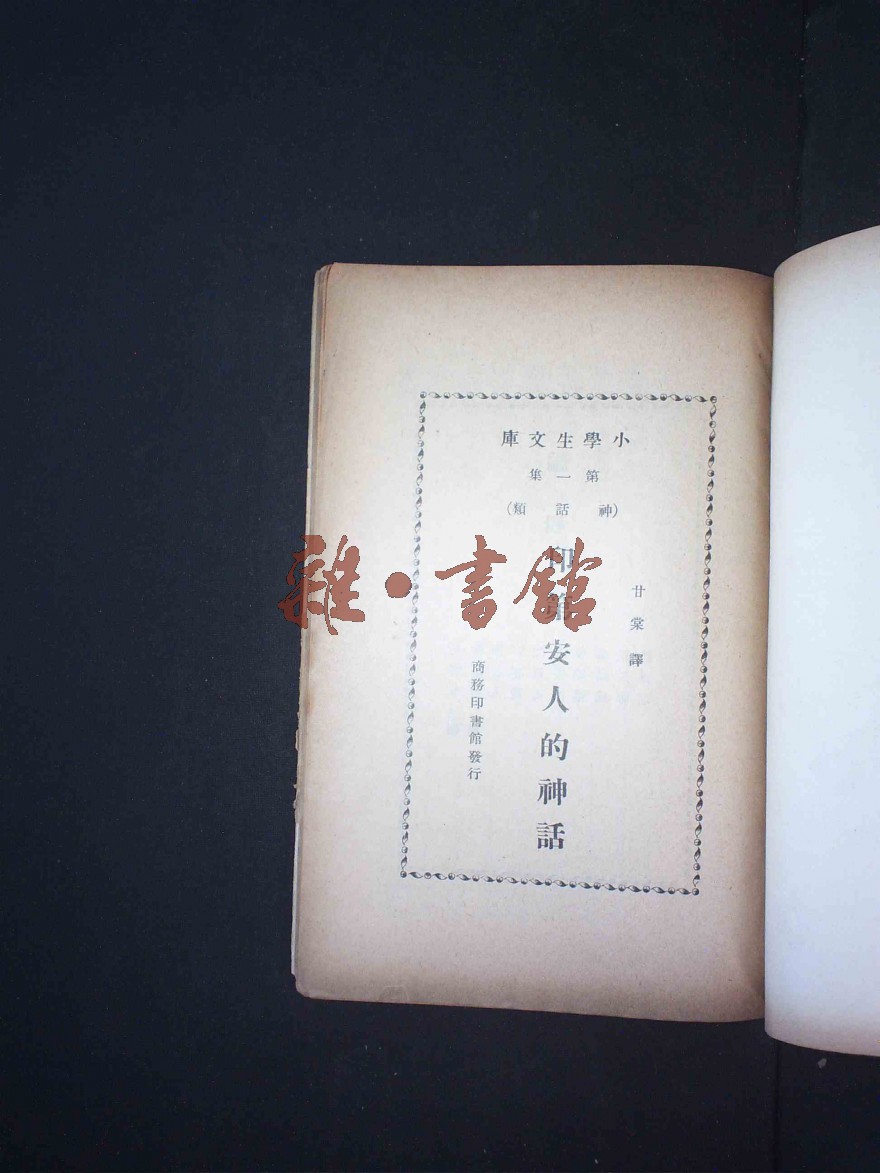 小學生文庫
第一集
（神話類）
甘棠譯
印第安人的神話
商務印書館發行
雜·書館